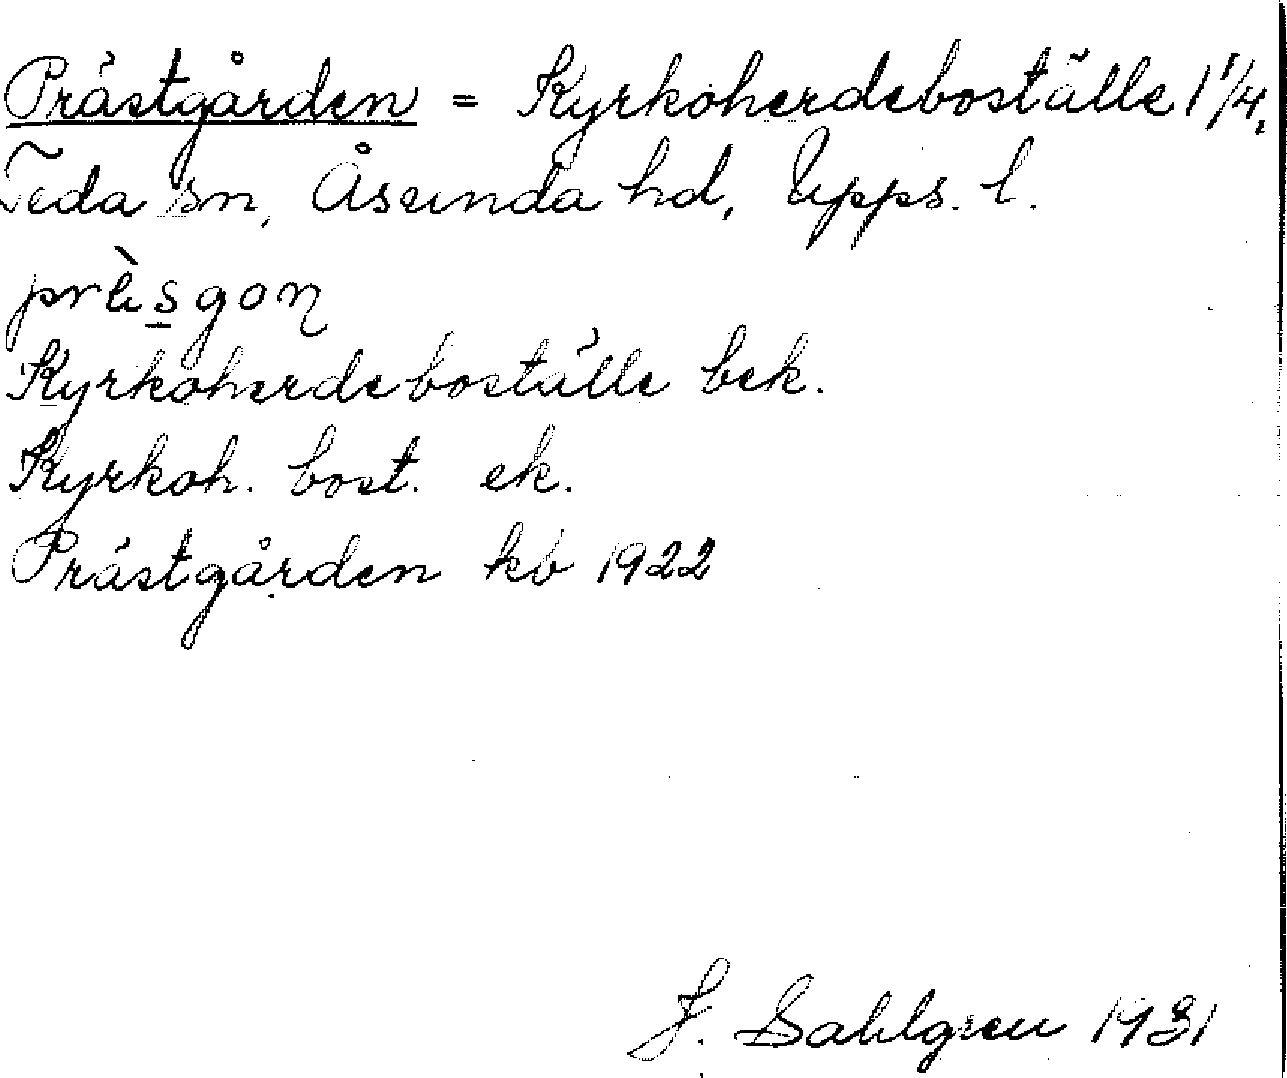 Prästgården = Kyrkoherdeboställe 1 1/4,
Teda sn, Åsunda hd, Upps. l.
prèsgoɳ
Kyrkoherdeboställe bek.
Kyrkoh. bost. ek.
Prästgården kb 1922
J. Sahlgren 1931